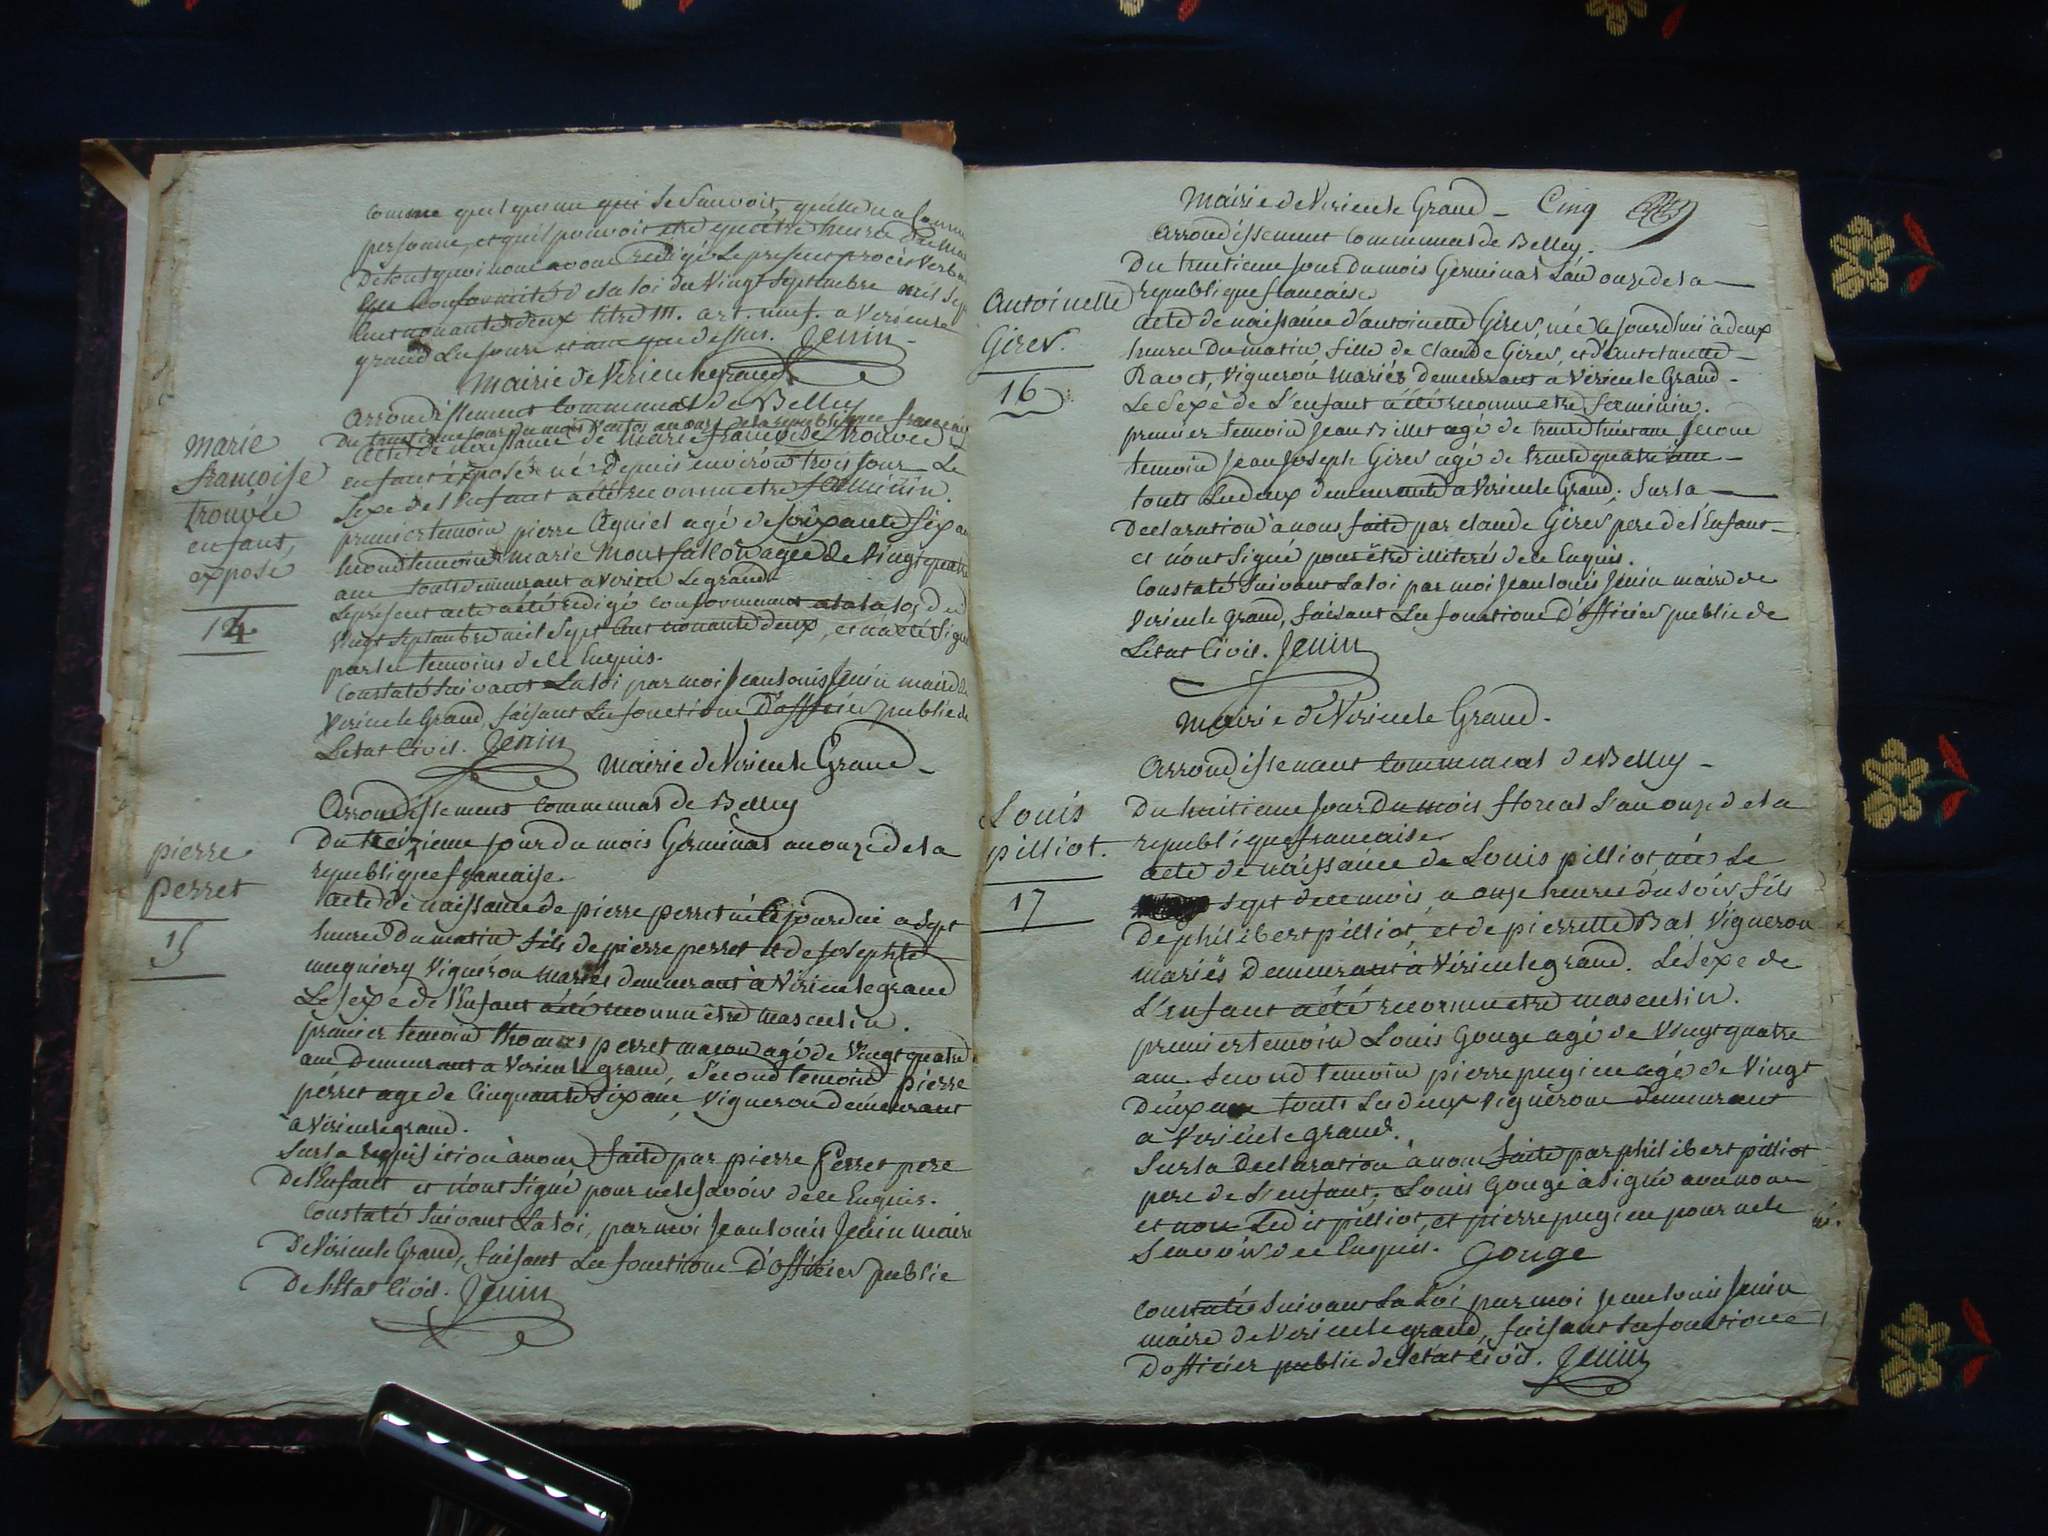 comme quelqu'un qui se sauvoit, qu'elle n'a connu
personne, et qu'il pouvoit etre quatre heures du matin
De tout quoi nous avons redigé Le present procès verbal
en Conformité de la loi du Vingt Septembre mil Sept
Cent nonante deux titre III. art. neuf. a Virieu le
grand Les jours et an que dessus. Jenin
Mairie de Virieu le grand
Arrondissement Communal de Belley
Du trentieme jour du mois Ventos an onze de la republique francaise
Acte de naissance de Marie françoise trouvée
enfant éxposé né depuis environ trois jour Le
Sexe de l'enfant a été reconnu etre feminin.
premier temoin pierre Agniel agé de soixante six ans
second temoin marie Montfallcon agée de Vingt quatre
ans touts demeurant a Virieu Le grand
Le present acte a été redigé conformement a la loi du
Vingt Septembre mil Sept Cent nonante deux, et n'a été Signé
par les temoins de ce Enquis.
Constaté Suivant La loi par moi Jean Louis Jenin maire de
Virieu le Grand, faisant Les fonctions D'officier public de
L'etat Civil. Jenin
marie
françoise
trouvée
enfant,
exposé
14
Mairie de Virieu le Grand
Arrondissement Communal de Belley
Du treizieme jour du mois Germinal an onze de la
republique francaise.
acte de naissance de pierre perret né Ce jourdui a Sept
heures Du matin fils de pierre perret et de Josephte
mugniery Vigneron mariés demeurant à Virieu le grand
Le Sexe de l'Enfant a été reconnu être masculin.
premier temoin thomas perret macon agé de Vingt quatre
ans Demeurant a Virieu le grand, Second temoin pierre
perret age de Cinquante Six ans, Vigneron demeurant
à Virieu le grand.
Sur la requisition à nous faite par pierre Perret pere
De l'Enfant et n'ont Signé pour ne le Savoir de ce Enquis.
Constaté Suivant La loi, par moi Jean Louis Jenin maire
De Virieu le Grand, faisant Les fonctions D'officier public
De L'Etat Civil. Jenin
pierre
perret
15
Mairie de Virieu le Grand Cinq
Arrondissement Communal de Belley.
Du huitieme Jour Du mois Germinal L'an onze de la
republique francaise
acte de naissance d'antoinette Girer, née ce jourdhui à deux
heures Du matin fille de Claude Girer, et d'antoinette
Ravet, Vigneron mariés demeurant à Virieu le Grand
Le Sexe de L'enfant a été reconnu etre feminin.
premier temoin Jean Billet agé de trente huit ans Second
temoin Jean Joseph Girer agé de trente quatre ans
touts Les deux demeurants a Virieu le Grand. Sur la
Declaration à nous faite par claude Girer pere de l'Enfant
et n'ont Signé pour être illiterés de ce Enquis.
Constaté Suivant La loi par moi Jean Louis Jenin maire de
Virieu le Grand, faisant Les fonctions D'officier public de
L'etat Civil. Jenin
Antoinette
Girer.
16
Mairie de Virieu le Grand.
Arrondissement Communal de Belley
Du huitieme Jour Du mois floreal L'an onze de la
republique francaise
acte de naissance de Louis pilliot né Le
sept de ce mois a onze heures du soir fils
De philibert pilliot et de pierrette Bal Vigneron
mariés Demeurant à Virieu le grand. Le Sexe de
L'enfant a été reconnu etre masculin.
premier temoin Louis Gouge agé de Vingt quatre
ans Second temoin pierre pugieu agé de Vingt
Deux ans touts Les deux Vignerons Demeurant
a Virieu le grand.
Sur la Declaration à nous faite par philibert pilliot
pere de L'enfant, Louis Gouge à Signé avec nous
et non Ledit pilliot, et pierre pugieu pour ne le
Scavoir de ce Enquis. Gouge
Constaté Suivant La Loi par moi Jean Louis Jenin
maire de Virieu le grand, faisant Les fonctions
D'officier public de l'état Civil. Jenin
Louis
pilliot.
17